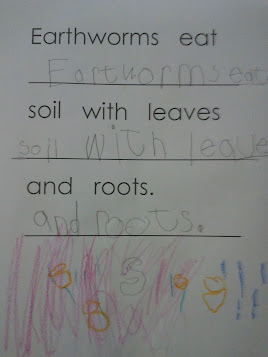 Earthworms eat
Earthworms eat
soil with leaves
soil with leave
and roots.
and roots.